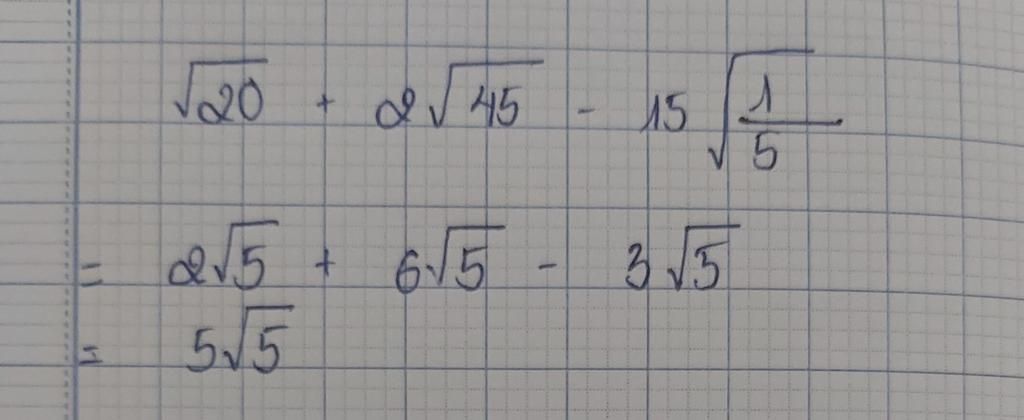 √20 + 2√45 - 15√(1/5)
= 2√5 + 6√5 - 3√5
= 5√5